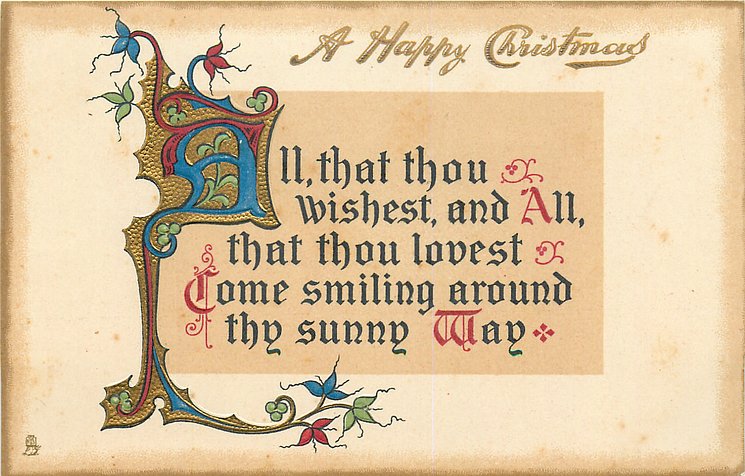 A Happy Christmas
All, that thou
wishest, and All,
that thou lovest
Come smiling around
thy sunny Way